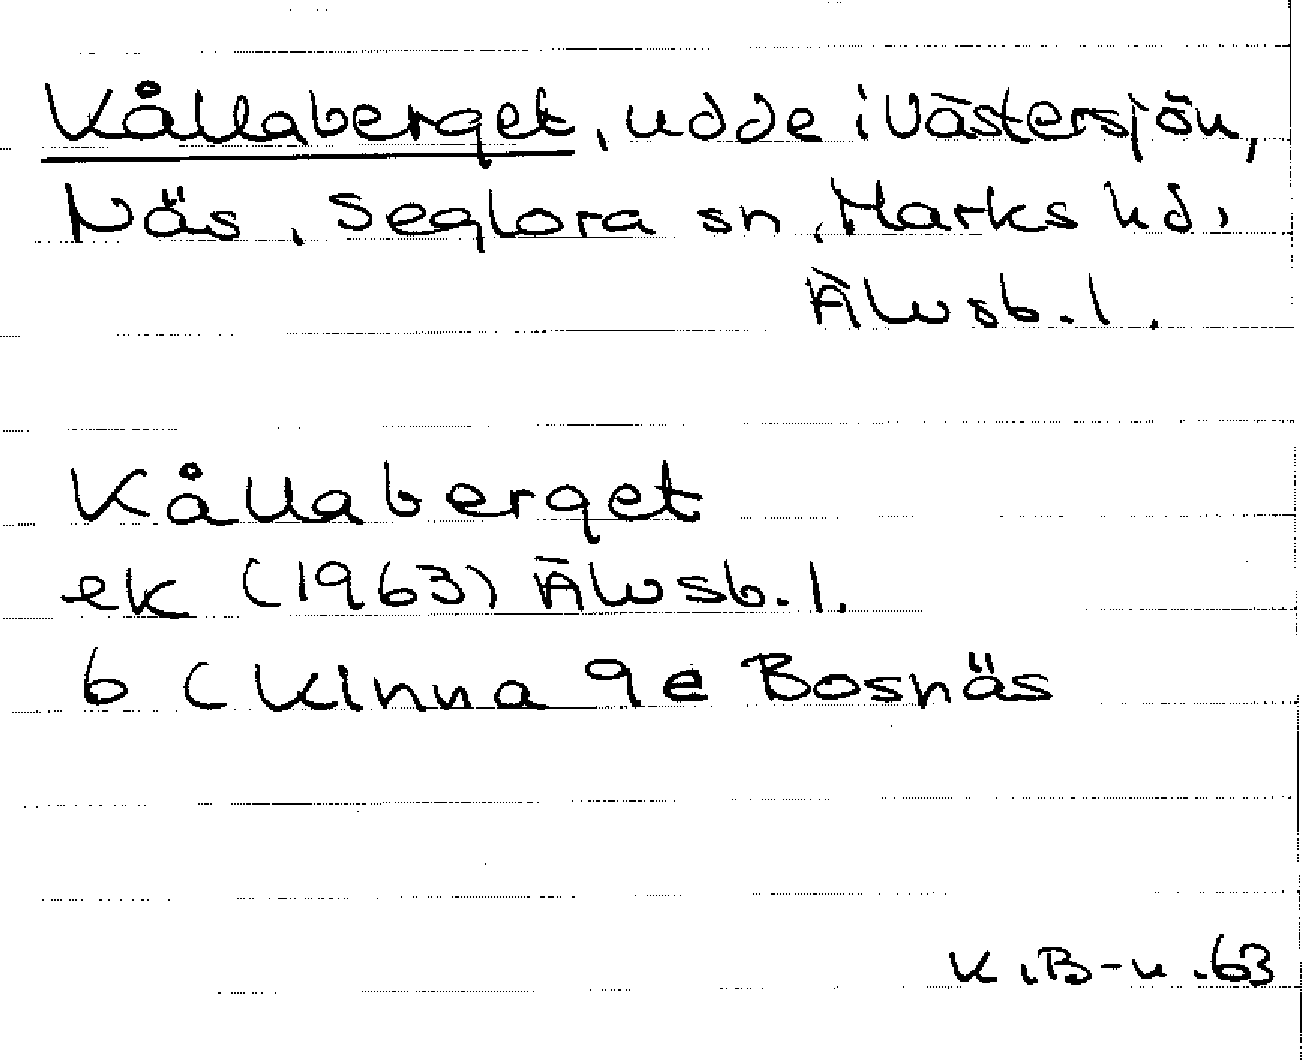 Kållaberget, udde i Västersjön,
Näs, Seglora sn, Marks hd,
Älvsb. l.
Kållaberget
ek (1963) Älvsb. l.
6 C Kinna 9e Bosnäs
K.B-n.63